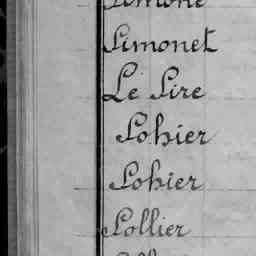 Simone
Simonet
Le Sire
Sohier
Sohier
Sollier